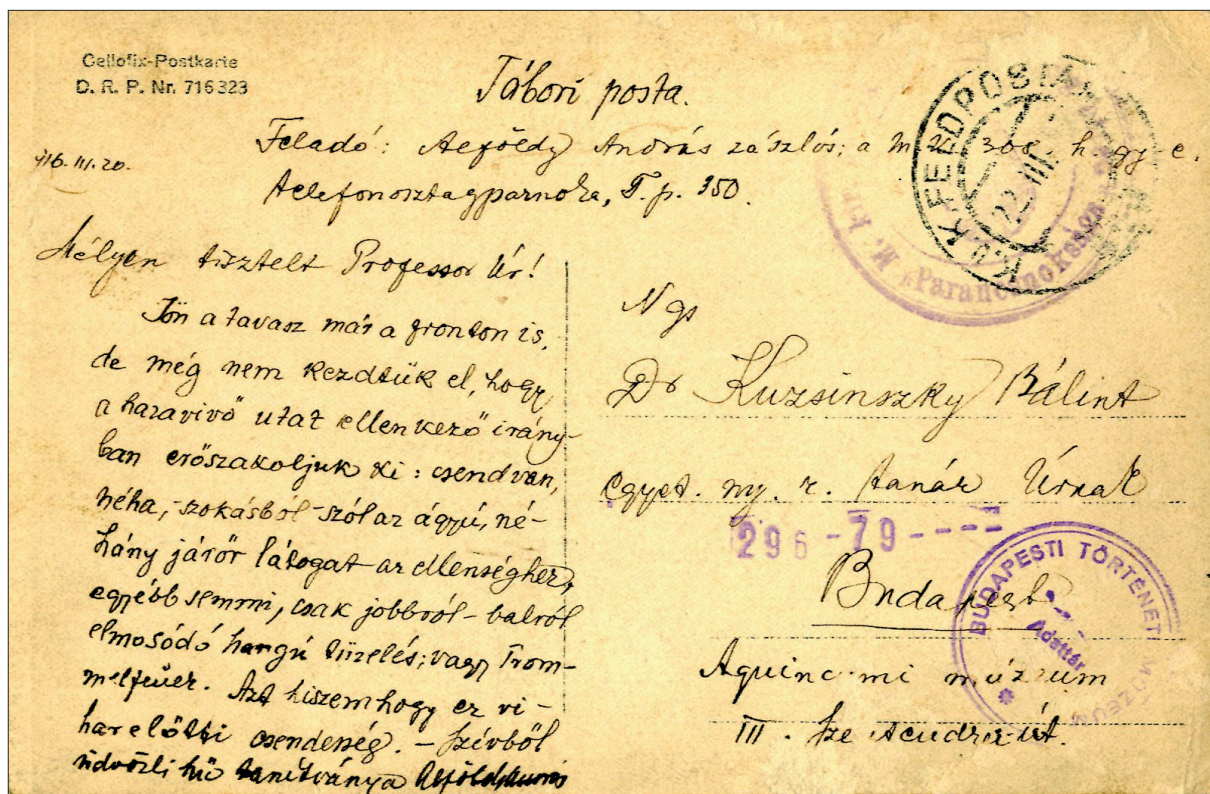 Cellofix-Postkarte
D. R. P. Nr. 716323
Tábori posta.
Feladó: Alföldy András zászlós; a m. kir. 308. h. gy. e.
916. III. 20.
telefonosztagparnoka, T. p. 350.
K.U.K. FELDPOSTAMT
22. III.
M. kir. Parancsnokság
Mélyen tisztelt Professor Úr!
Jön a tavasz már a fronton is,
de még nem kezdtük el, hogy
a hazavivő utat ellenkező irány-
ban erőszakoljuk ki: csend van,
néha, - szokásból - szól az ágyú, né-
hány járőr látogat az ellenséghez,
egyébb semmi, csak jobbról - balról
elmosódó hangú tüzelés; vagy Trom-
melfeuer. Azt hiszem hogy ez vi-
har előtti csendesség. - Szívből
üdvözli hű tanítványa Alföldy András
Ngs
Dr Kuzsinszky Bálint
egyet. ny. r. tanár Úrnak
296-79----
Budapest
Aquincumi múzeum
III. Sze
BUDAPESTI TÖRTÉNETI MÚZEUM
Adattár